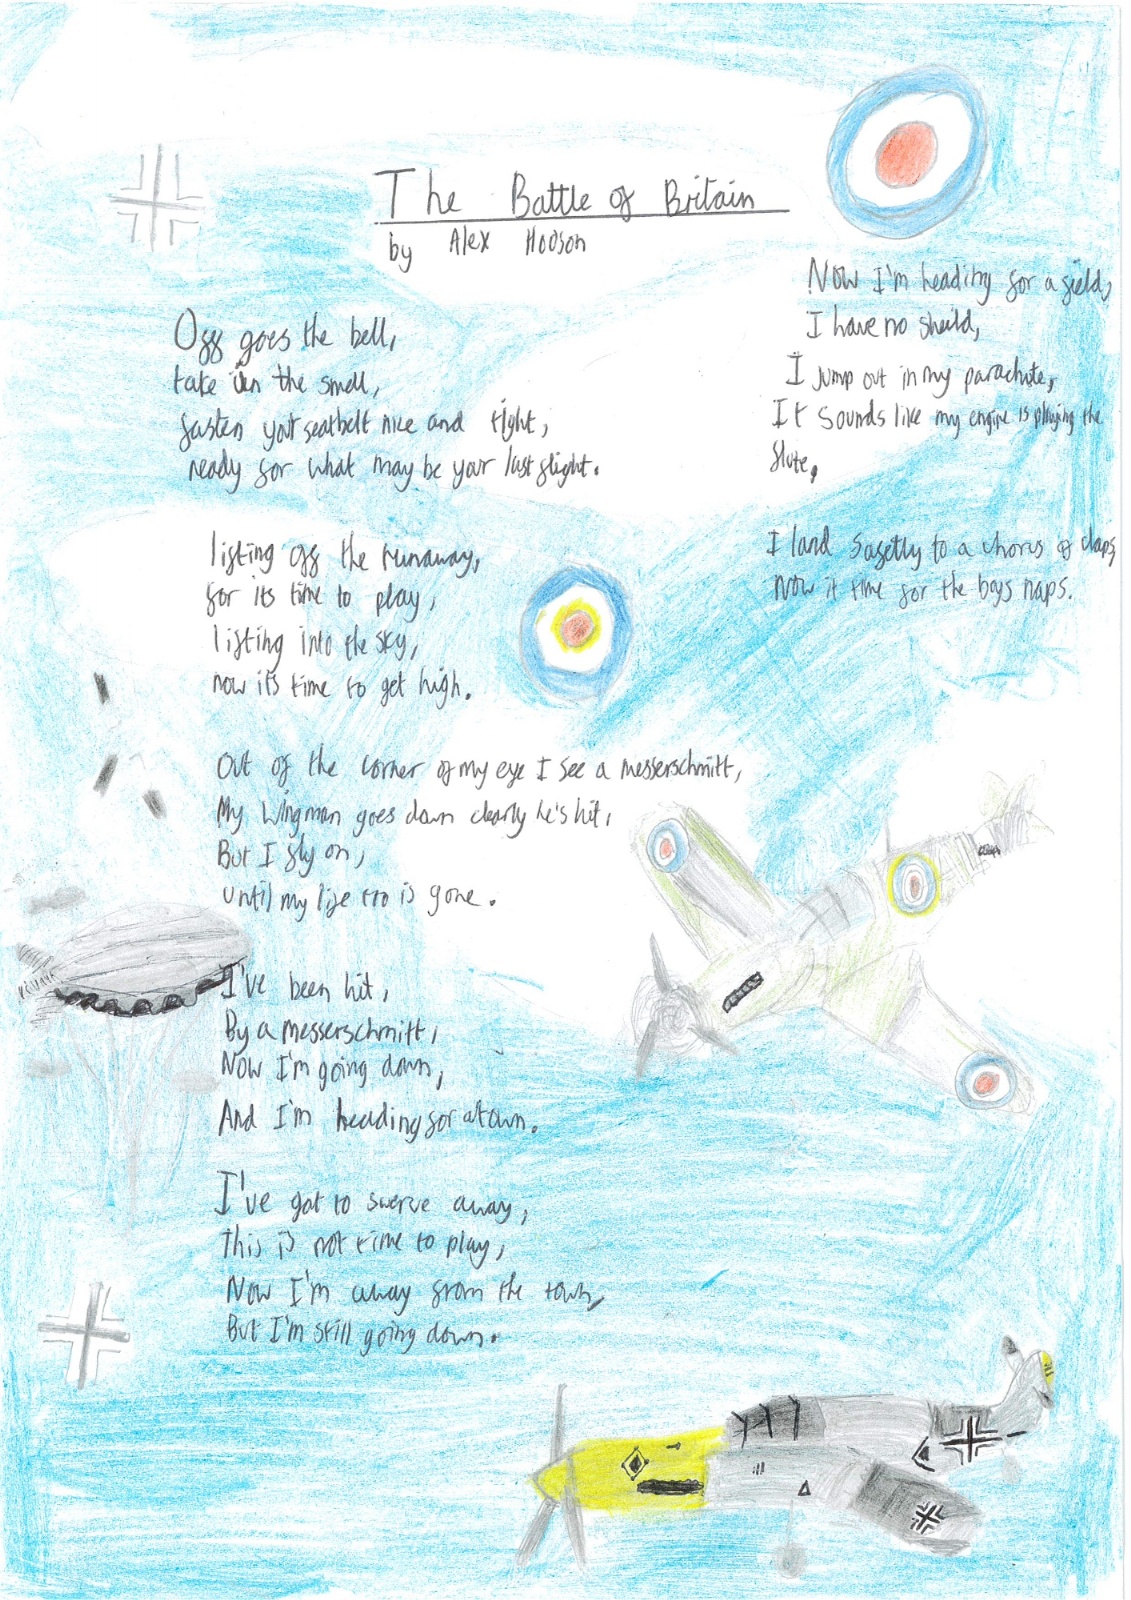 The Battle of Britain
by Alex Hodson
Off goes the bell,
take in the smell,
fasten your seatbelt nice and tight,
ready for what may be your last flight.
lifting off the runaway,
for its time to play,
lifting into the sky,
now it's time to get high.
Out of the corner of my eye I see a messerschmitt,
My wingman goes down clearly he's hit,
But I fly on,
until my life too is gone.
I've been hit,
By a messerschmitt,
Now I'm going down,
And I'm heading for a town.
I've got to swerve away,
This is not time to play,
Now I'm away from the town,
But I'm still going down.
Now I'm heading for a field,
I have no sheild,
I jump out in my parachute,
It sounds like my engine is playing the
flute,
I land safetly to a chorus of claps,
Now it time for the boys naps.